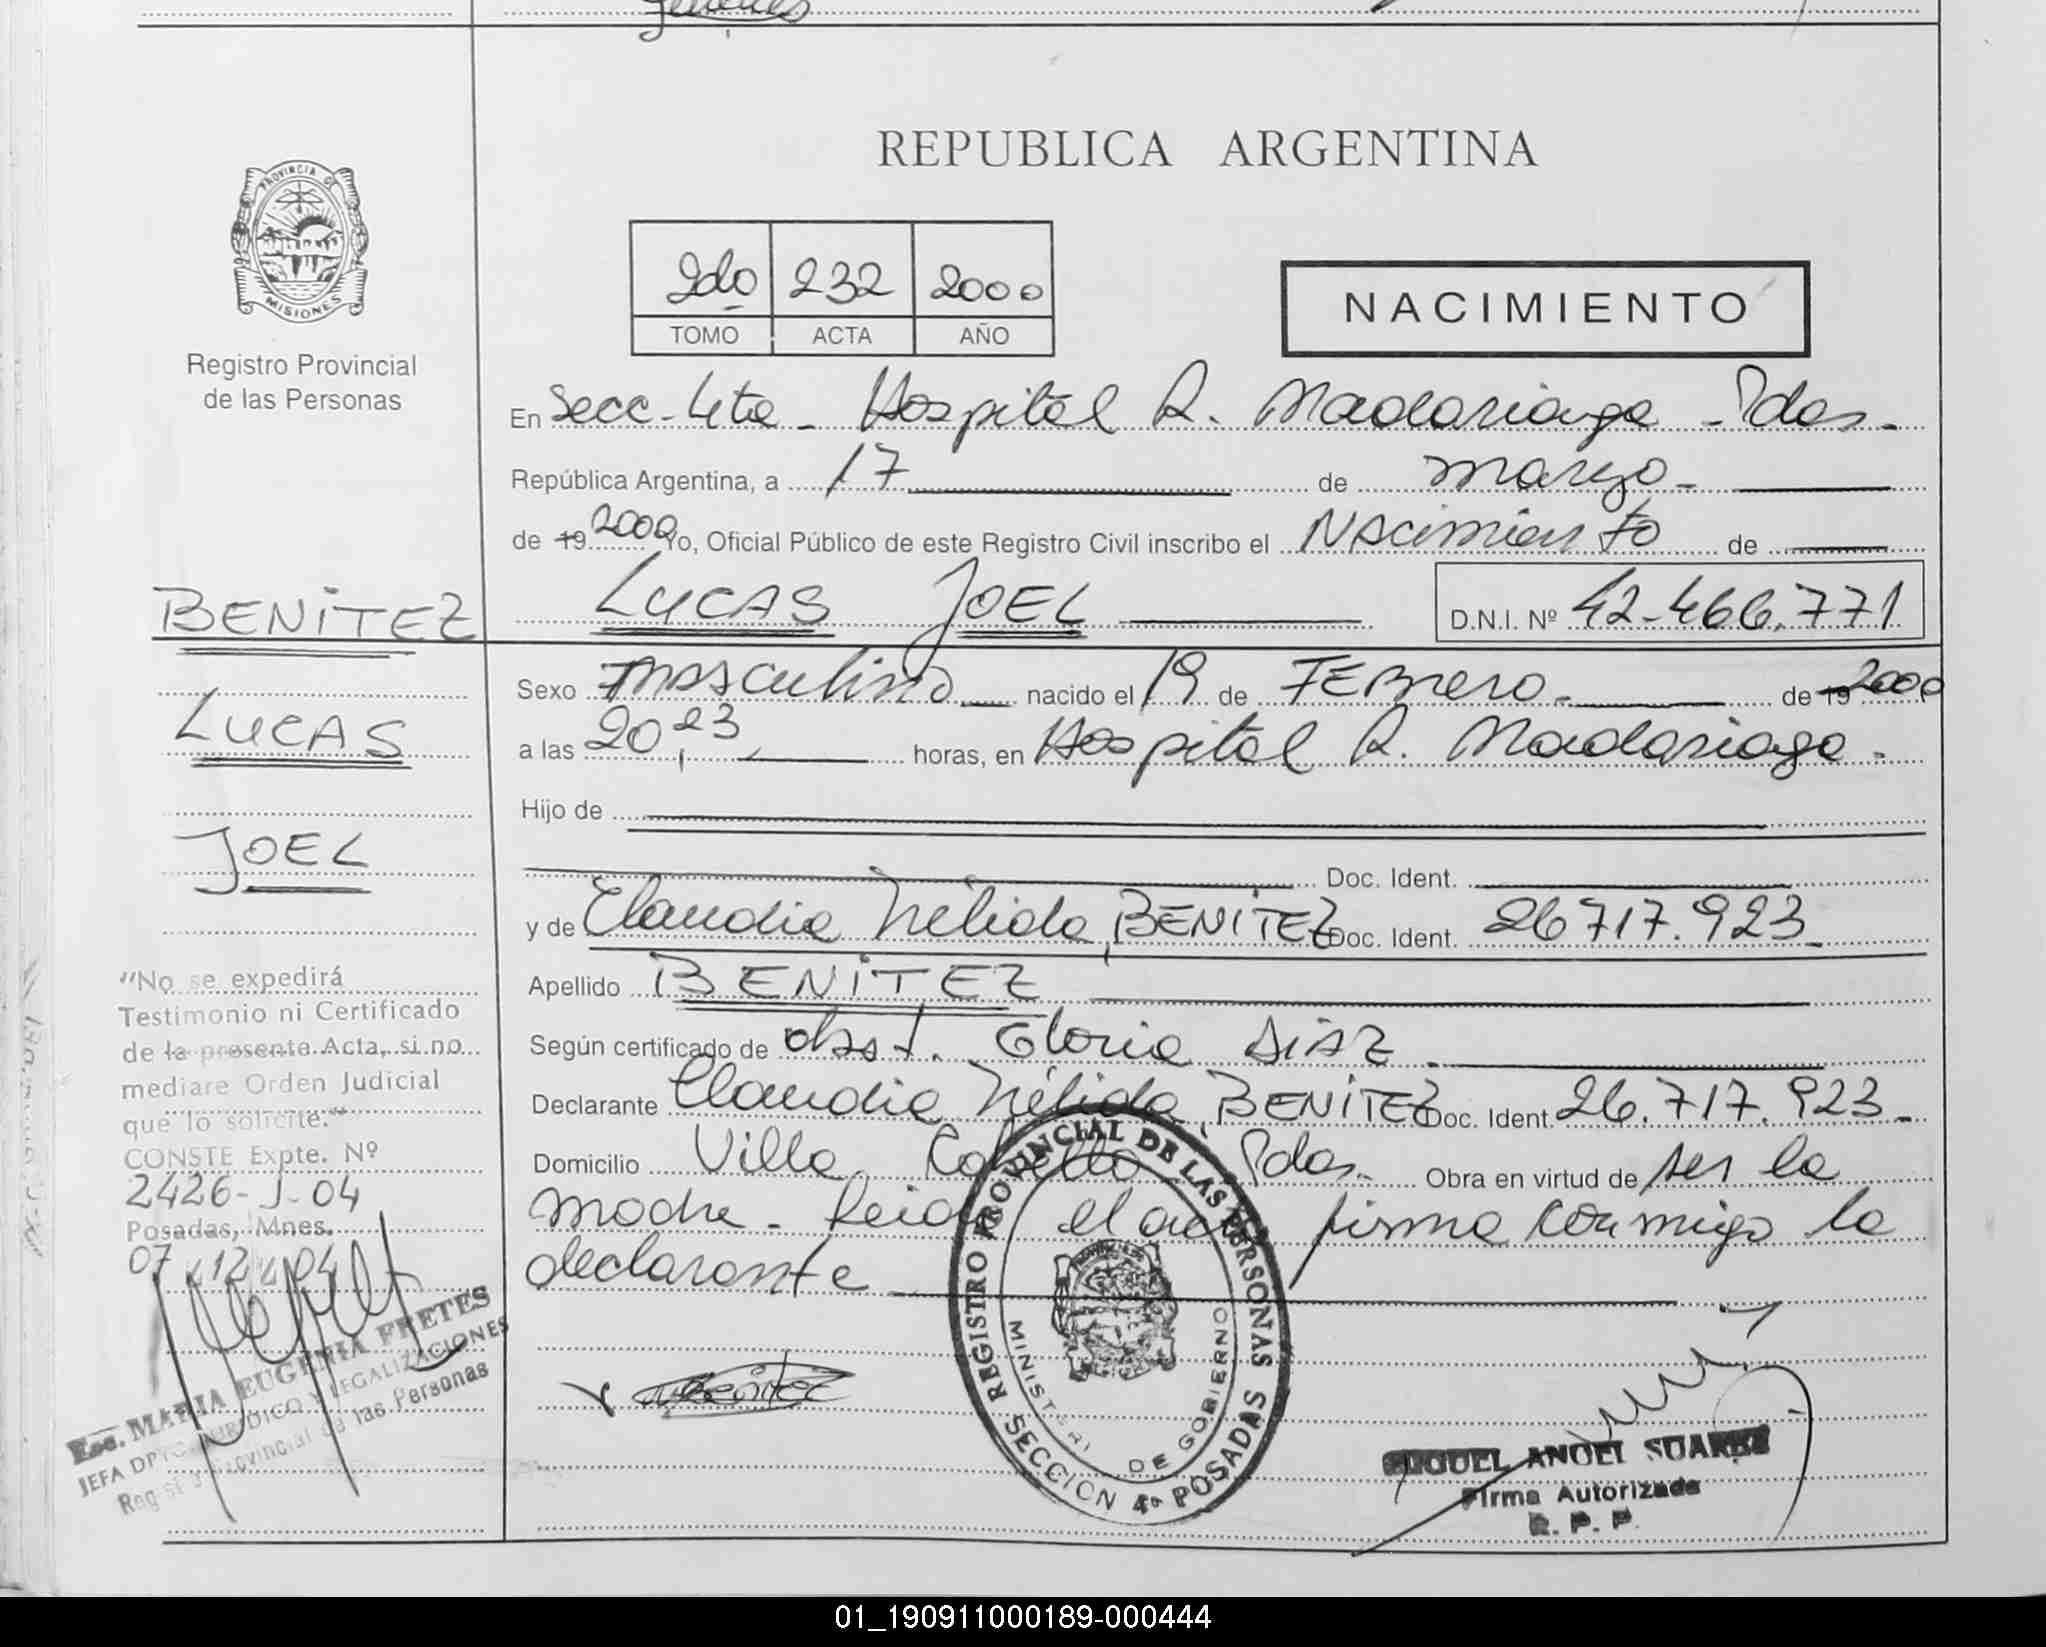 REPUBLICA ARGENTINA
PROVINCIA DE
MISIONES
Registro Provincial
de las Personas
2do 232 2000
TOMO ACTA AÑO
NACIMIENTO
En Secc-4ta - Hospital R. Madariaga - Pdas.
República Argentina, a 17 de marzo
de 19 2000 Yo, Oficial Público de este Registro Civil inscribo el Nacimiento de
LUCAS JOEL D.N.I. Nº 42-466.771
Sexo masculino nacido el 19 de FEBrero de 19 2000
a las 20,23 horas, en Hospital R. Madariaga.
Hijo de
Doc. Ident.
y de Claudia Nélida BENITEZ Doc. Ident. 26717.923
Apellido BENITEZ
Según certificado de obst. Gloria DIAZ
Declarante Claudia Nélida BENITEZ Doc. Ident. 26.717.923
Domicilio Villa Cabello Pdas. Obra en virtud de ser la
madre. Leida el acta firma conmigo la
declarante
BENITEZ
LUCAS
JOEL
"No se expedirá
Testimonio ni Certificado
de la presente Acta, si no
mediare Orden Judicial
que lo solicite."
CONSTE Expte. Nº
2426-J-04
Posadas, Mnes.
07 12 04
Esc. MARIA EUGENIA FRETES
JEFA DPTO. JURIDICO Y LEGALIZACIONES
Registro Provincial de las Personas
Benitez
REGISTRO PROVINCIAL DE LAS PERSONAS
MINISTERIO DE GOBIERNO
SECCION 4ª POSADAS
MIGUEL ANGEL SUAREZ
Firma Autorizada
R. P. P.
01_190911000189-000444